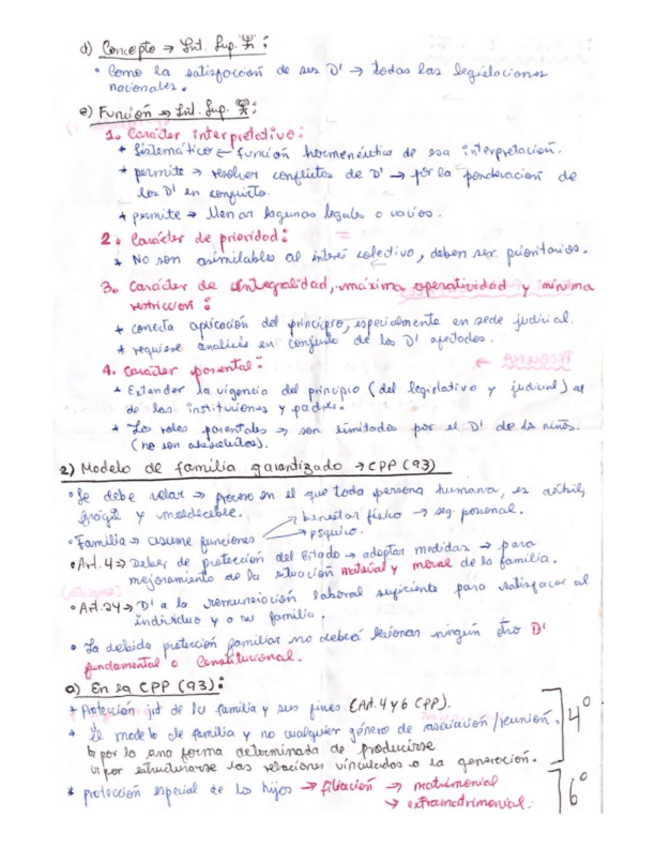 d) Concepto → Int. Sup. 옷:
• Como la satisfacción de sus D' → todas las legislaciones
nacionales.
e) Función → Int. Sup. 옷:
1. Carácter interpretativo:
+ Sistemático ← función hermenéutica de esa interpretación.
+ permite → resolver conflictos de D' → por la ponderación de
los D' en conflicto.
+ permite → llenar lagunas legales o vacíos.
2. Carácter de prioridad:
+ No son asimilables al interés colectivo, deben ser prioritarios.
3. Carácter de integralidad, máxima operatividad y mínima
restricción:
+ conecta aplicación del principio, especialmente en sede judicial.
+ requiere análisis en conjunto de los D' afectados.
4. Carácter parental:
+ Extender la vigencia del principio (del legislativo y judicial) al
de las instituciones y padres.
+ Los roles parentales → son limitados por el D' de los niños.
(no son absolutos).
2) Modelo de familia garantizado → CPP (93)
• Se debe velar → proceso en el que toda persona humana, es débil,
frágil y moldeable.
• Familia → asume funciones → bienestar físico → seg. personal.
→ psíquico.
• Art. 4 → Deber de protección del Estado → adoptar medidas → para
mejoramiento de la situación material y moral de la familia.
• Art. 24 → D' a la remuneración laboral suficiente para satisfacer al
individuo y a su familia.
• La debida protección familiar no deberá lesionar ningún otro D'
fundamental o Constitucional.
a) En la CPP (93):
+ Protección jrd de la familia y sus fines (Art. 4 y 6 CPP).
+ El modelo de familia y no cualquier género de asociación/reunión, 4°
↳ por la una forma determinada de producirse
↳ por estructurarse las relaciones vinculadas a la generación.
* protección especial de los hijos → filiación → matrimonial 6°
→ extramatrimonial.